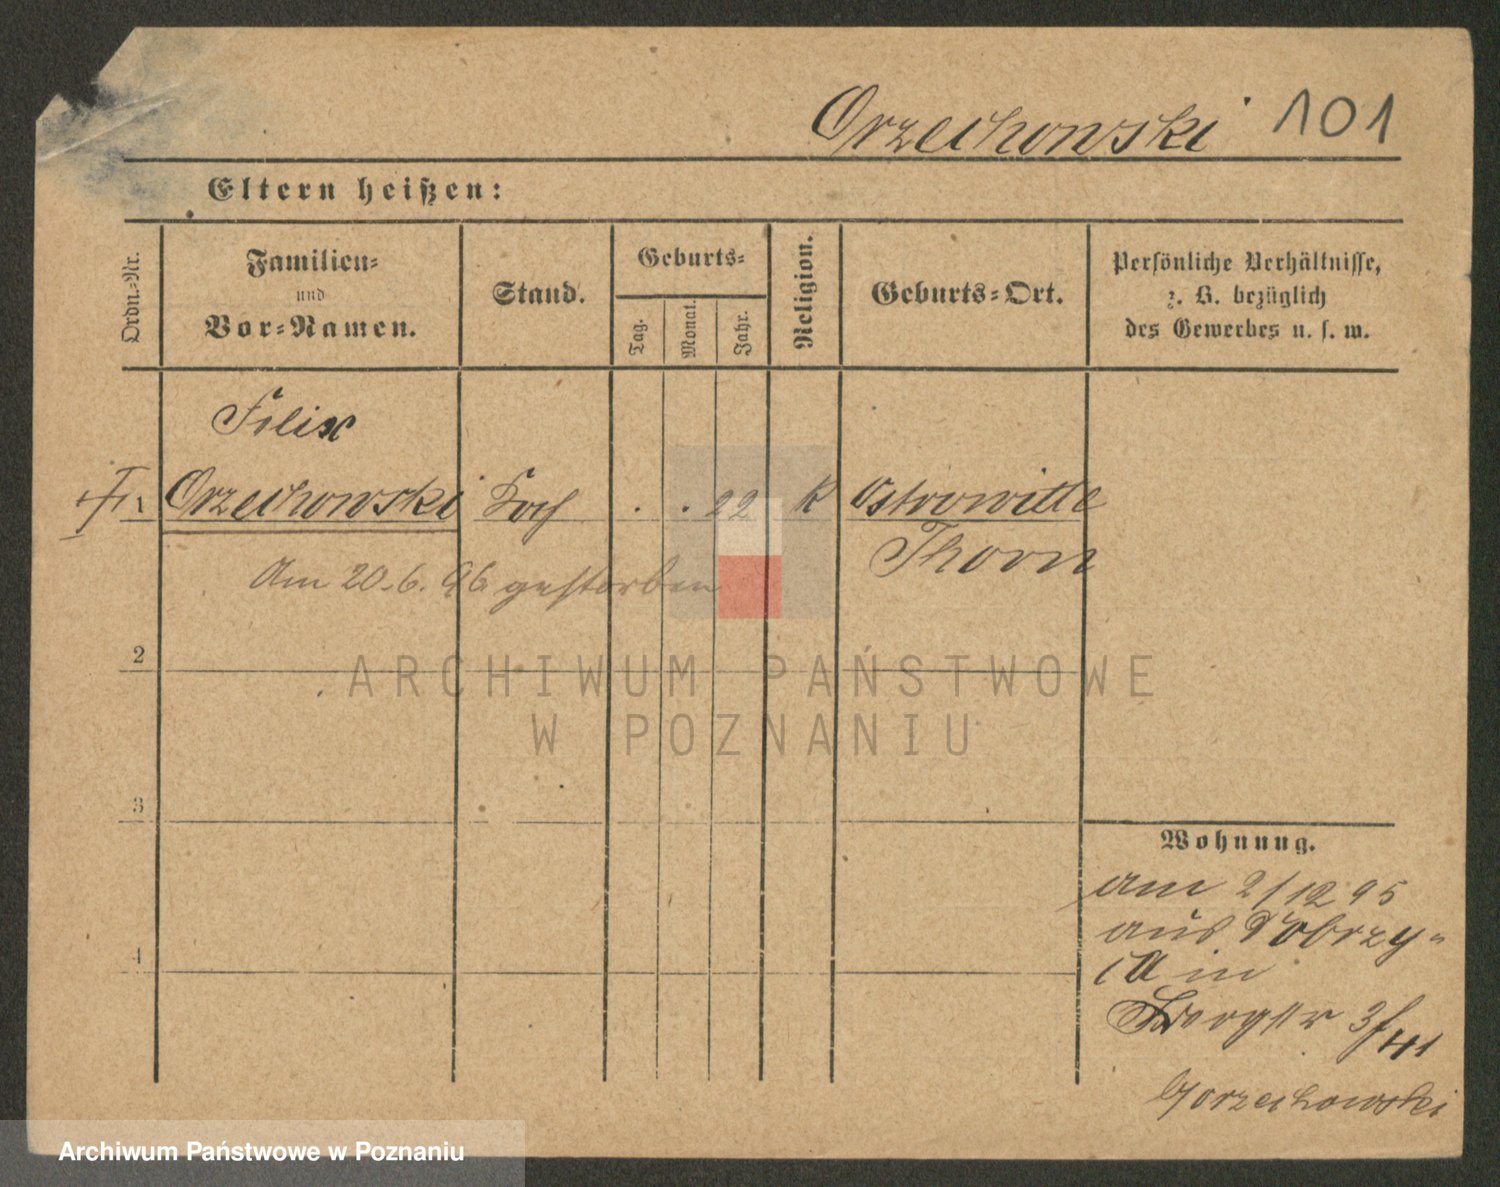 Orzechowski 101
Eltern heißen:
Ordn.-Nr.
Familien-
und
Vor-Namen.
Stand.
Geburts-
Tag.
Monat.
Jahr.
Religion.
Geburts-Ort.
Persönliche Verhältnisse,
z. B. bezüglich
des Gewerbes u. s. w.
Felix
Orzechowski . . 22 K Ostrowitte
Thorn
Am 20.6.96 gestorben
2
3
4
Wohnung.
am 2/12 95
aus Dobrzy-
ca in
Bergstr 3
Gorzechowski
ARCHIWUM PAŃSTWOWE
W POZNANIU
Archiwum Państwowe w Poznaniu